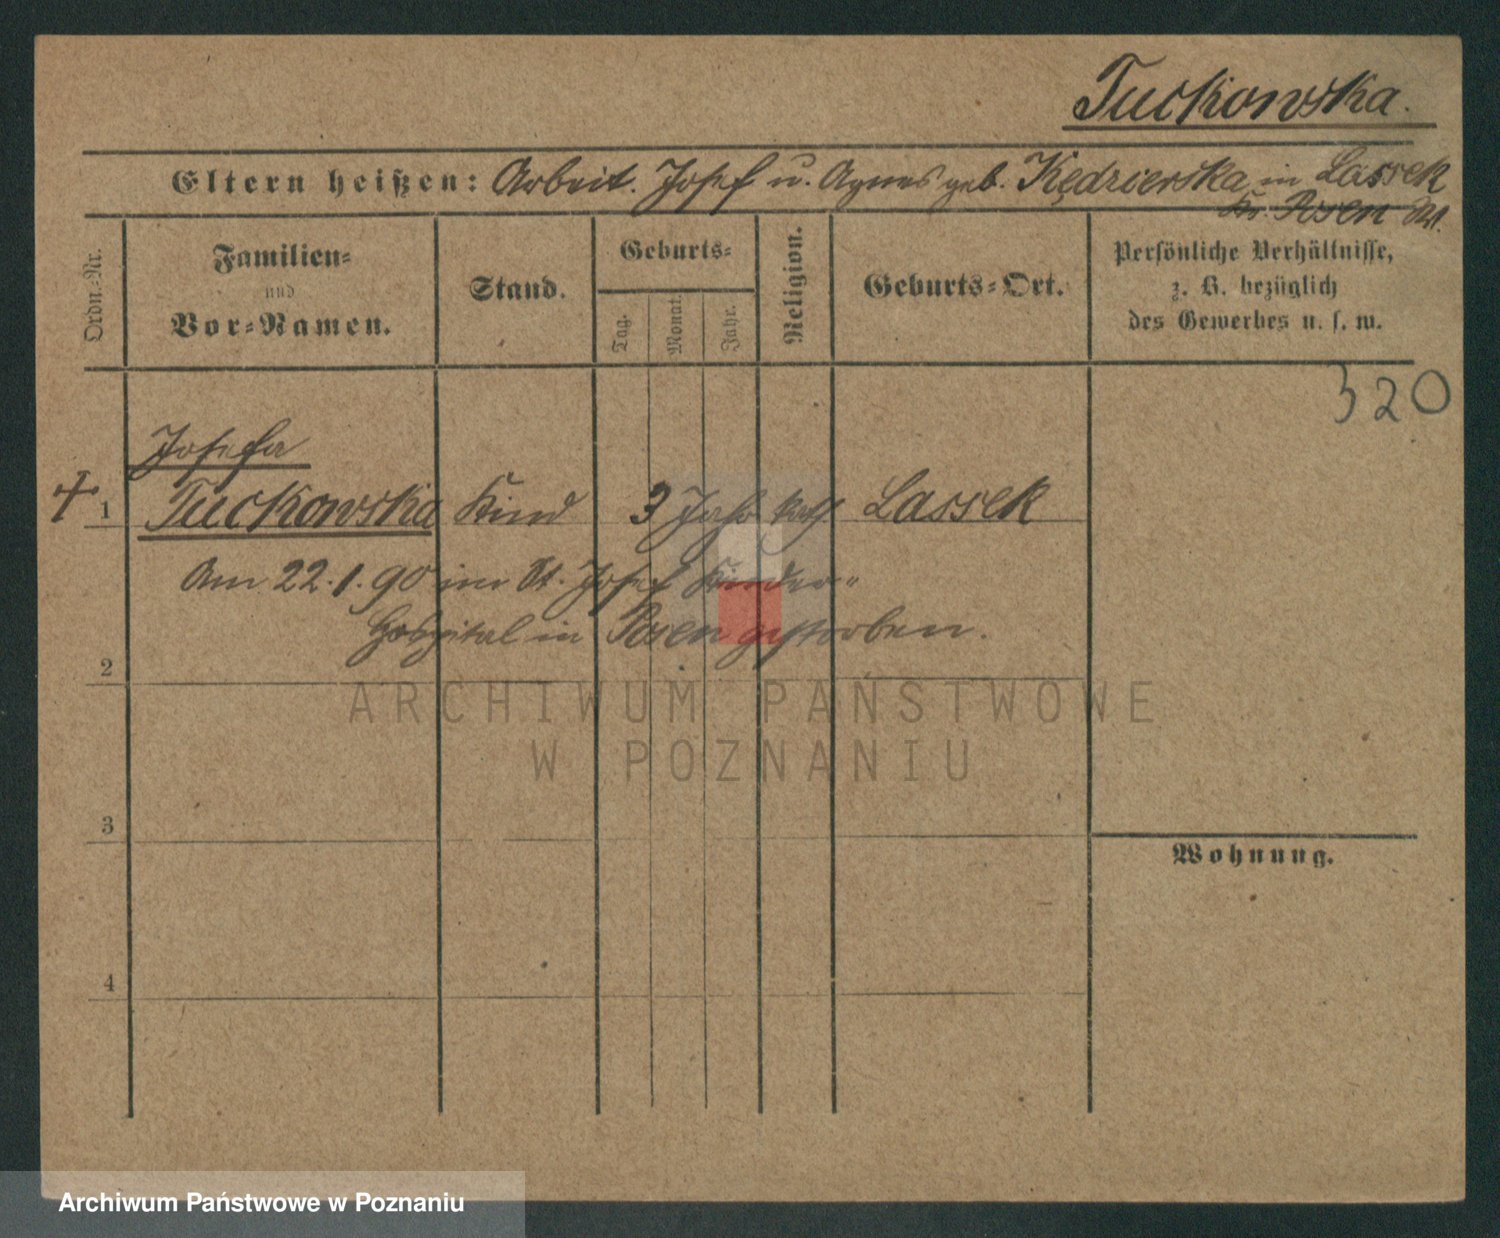 Tuckowska.
Eltern heißen: Arbeit. Josef u. Agnes geb. Kędzierska in Lassek
Kr. Posen Ost.
Ordn.-Nr.
Familien-
und
Vor-Namen.
Stand.
Geburts-
Tag.
Monat.
Jahr.
Religion.
Geburts-Ort.
Persönliche Verhältnisse,
z. B. bezüglich
des Gewerbes u. s. w.
320
Josefa
+ 1 Tuckowska Kind 3 Jahr kath Lassek
Am 22.1.90 im St. Josef Kinder-
Hospital in Posen gestorben.
2
ARCHIWUM PAŃSTWOWE
W POZNANIU
3
Wohnung.
4
Archiwum Państwowe w Poznaniu